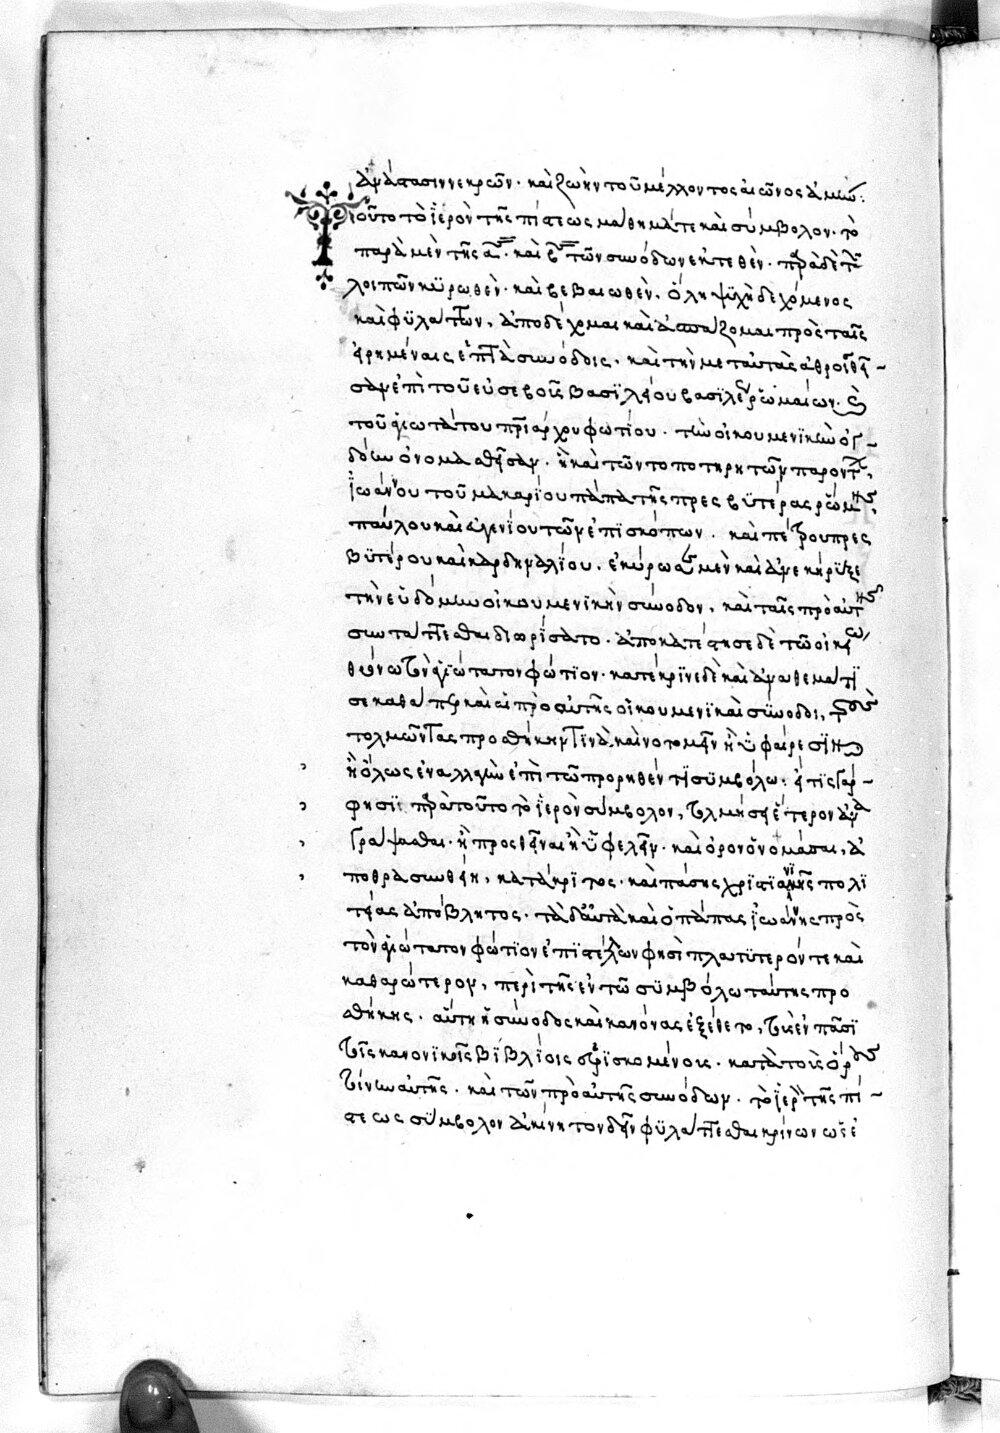 ἀνάστασιν νεκρῶν· καὶ ζωὴν τοῦ μέλλοντος αἰῶνος ἀμήν:
Τοῦτο τὸ ἱερὸν τῆς πίστεως μάθημά τε καὶ σύμβολον· τὸ
παρὰ μὲν τῆς α· καὶ β τῶν συνόδων ἐκτεθὲν· παρὰ δὲ τῶν
λοιπῶν κϋρωθὲν· καὶ βεβαιωθὲν, ὅλη ψϋχῆ δεχόμενος
καὶ φϋλάττων, ἀποδέχομαι καὶ ἀσπάζομαι πρὸς ταῖς
εἰρημέναις ἑπτὰ συνόδοις, καὶ τὴν μετ' αὐτὰς ἀθροισθεῖ-
σαν ἐπὶ τοῦ εὐσεβοῦς βασιλείου βασιλέως ῥωμαίων· καὶ
τοῦ ἁγιωτάτου πατριάρχου φωτίου· τὴν οἰκουμενϊκὴν ὀγ-
δόην ὀνομασθεῖσαν· ἣ καὶ τῶν τοποτηρητῶν παρόντων,
ἰωάννου τοῦ μακαρίου πάπα τῆς πρεσβϋτέρας ῥώμης,
παύλου καὶ εὐγενίου τῶν ἐπϊσκόπων· καὶ πέτρου πρεσ
βϋτέρου καὶ καρδηναλίου, ἐκύρωσε μὲν καὶ ἀνεκήρϋξε
τὴν ἑβδόμην οἰκουμενϊκὴν σύνοδον, καὶ ταῖς πρὸ αὐτῆς
συντάττεσθαι διωρίσατο· ἀποκατέστησε δὲ τῶ οἰκείω
θρόνω τὸν ἁγϊώτατον φώτϊον· κατέκρϊνε δὲ καὶ ἀνεθεμάτϊ
σε καθάπερ καὶ αἱ πρὸ αὐτῆς οἰκουμενϊκαὶ σύνοδοι, τοὺς
τολμῶντας προσθήκην τϊνὰ καινοτομεῖν ἢ ὑφαίρεσϊν
ἢ ὅλως ἐναλλαγὴν ἐπὶ τῶ προρηθέντϊ συμβόλω· εἴ τϊς γάρ
φησϊ παρὰ τοῦτο τὸ ἱερὸν σύμβολον, τολμήσει ἕτερον ἀνα
γράψασθαι· ἢ προσθεῖναι ἢ ὑφελεῖν· καὶ ὅρον ὀνομάσαι, ἀ
πόθρασυνθείη, κατάκρϊτος· καὶ πάσης χρϊστϊανϊκῆς πολϊ
τείας ἀπόβλητος· τὰ δ' αὐτὰ καὶ ὁ πάπας ἰωάννης πρὸς
τὸν ἁγιώτατον φώτϊον ἐπϊστέλλων φησὶ πλατύτερόν τε καὶ
καθαρώτερον, περὶ τῆς ἐν τῶ σϋμβόλω ταύτης προ
σθήκης· αὕτη ἡ σύνοδος καὶ κανόνας ἐξέθετο, τοὺς ἐν πᾶσϊ
τοῖς κανονϊκοῖς βϊβλίοις εὑρϊσκομένους· κατὰ τοὺς ὅρους
τοίνυν αὐτῆς· καὶ τῶν πρὸ αὐτῆς συνόδων· τὸ ἱερὸν τῆς πί-
στεως σϋμβολον ἀκίνητον δεῖν φϋλάττεσθαι κρίνων ὡς ἐ